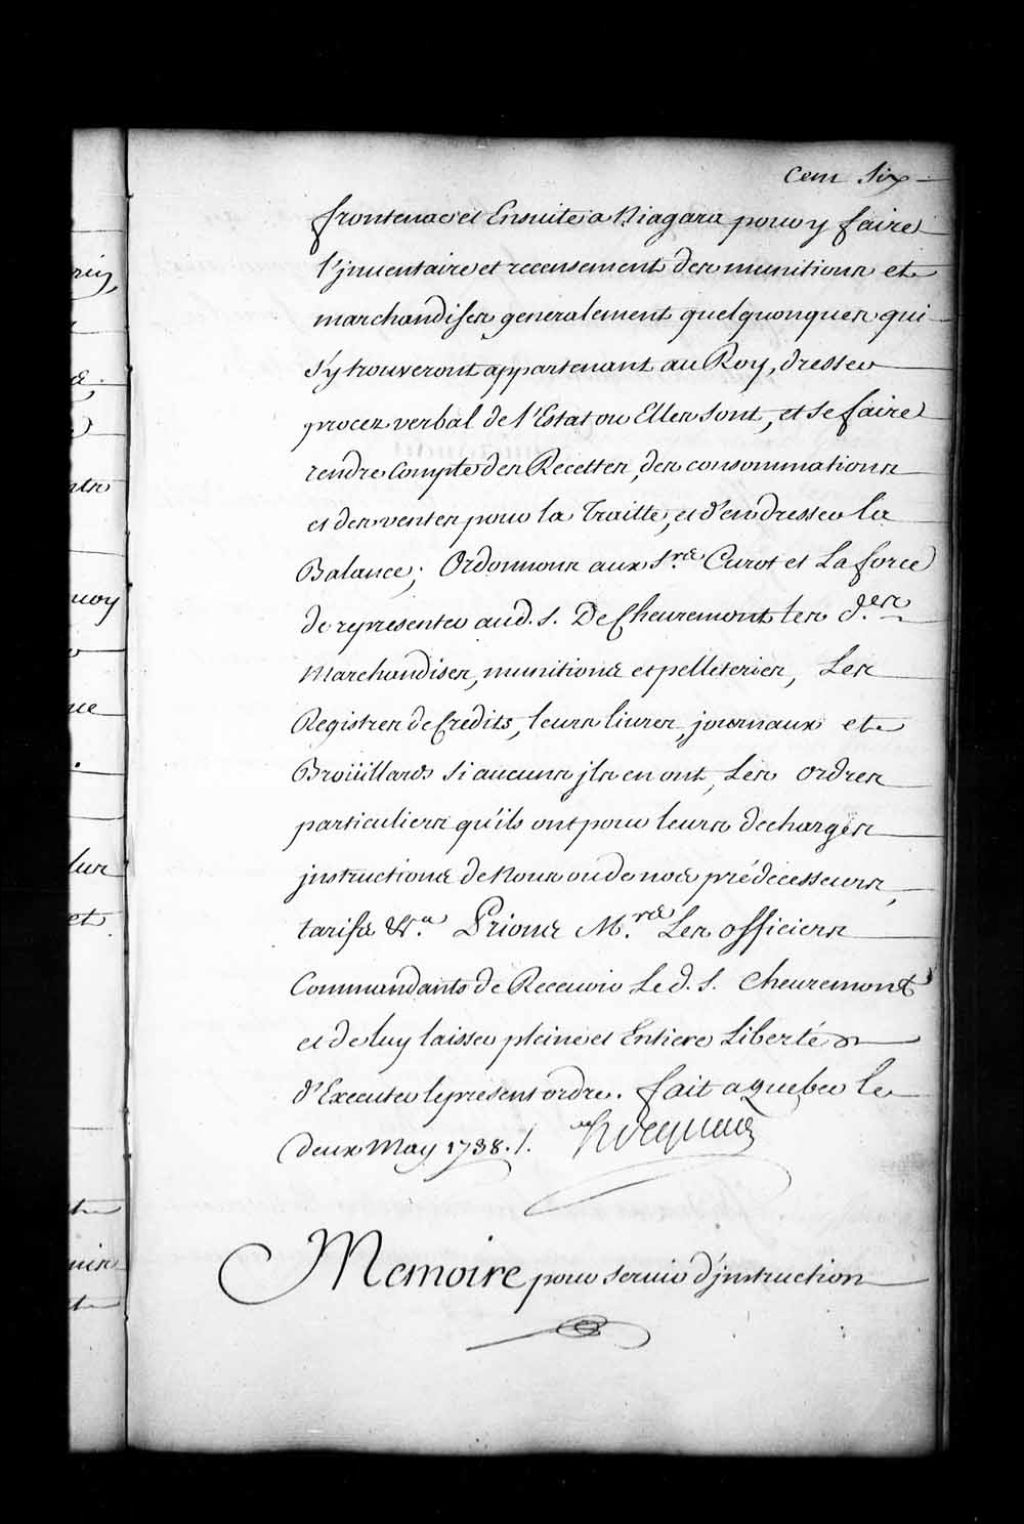 Cent Six
frontenac et Ensuite a Niagara pour y faire
l'jnuentaire et recensement des munitions et
marchandises generalement quelquonques qui
s'y trouveront appartenant au Roy, dresser
procez verbal de l'Estat ou Elles sont, et se faire
rendre Compte des Recettes, des consommations
et des ventes pour la Traitte, et d'en dresser la
Balance; Ordonnons aux Srs. Curot et Laforce
de representer aud. S. De Cheuremont les des.
Marchandises, munitions et pelleteries, Les
Registres de Credits, leurs liures, journaux et
Broüillards si aucuns jls en ont, Les ordres
particuliers qu'ils ont pour leurs decharges
jnstructions de Nous ou de nos prédecesseurs,
tarifs &a. Prions Mrs. Les officiers
Commandants de Receuoir Le d. S. Cheuremont
et de luy laisser pleine et Entiere Liberté
d'Executer le present ordre. fait a quebec le
deux May 1738. /. Hocquart
Memoire pour seruir d'jnstruction
ries,
&.
ntre
uoy
ue
lus
et